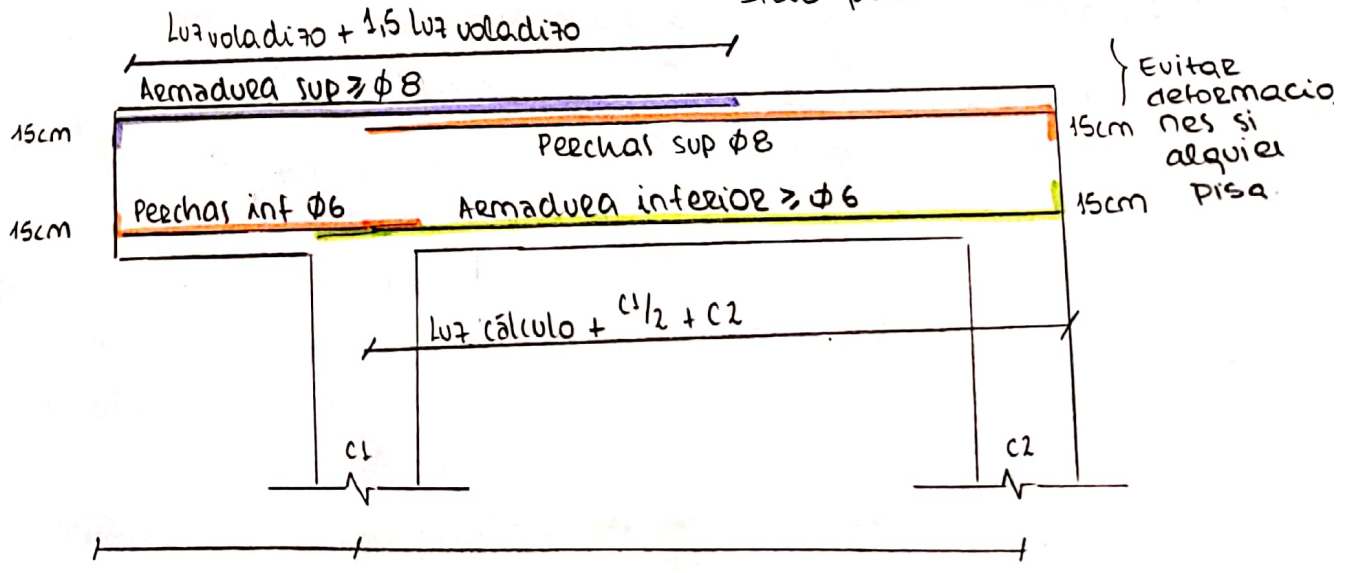 Luz voladizo + 1,5 luz voladizo
Armadura sup ≥ ϕ 8
15cm
Perchas sup ϕ8
15cm
Evitar
deformacio
nes si
alguien
pisa.
Perchas inf ϕ6
Armadura inferior ≥ ϕ 6
15cm
15cm
Luz cálculo + C1/2 + C2
C1
C2